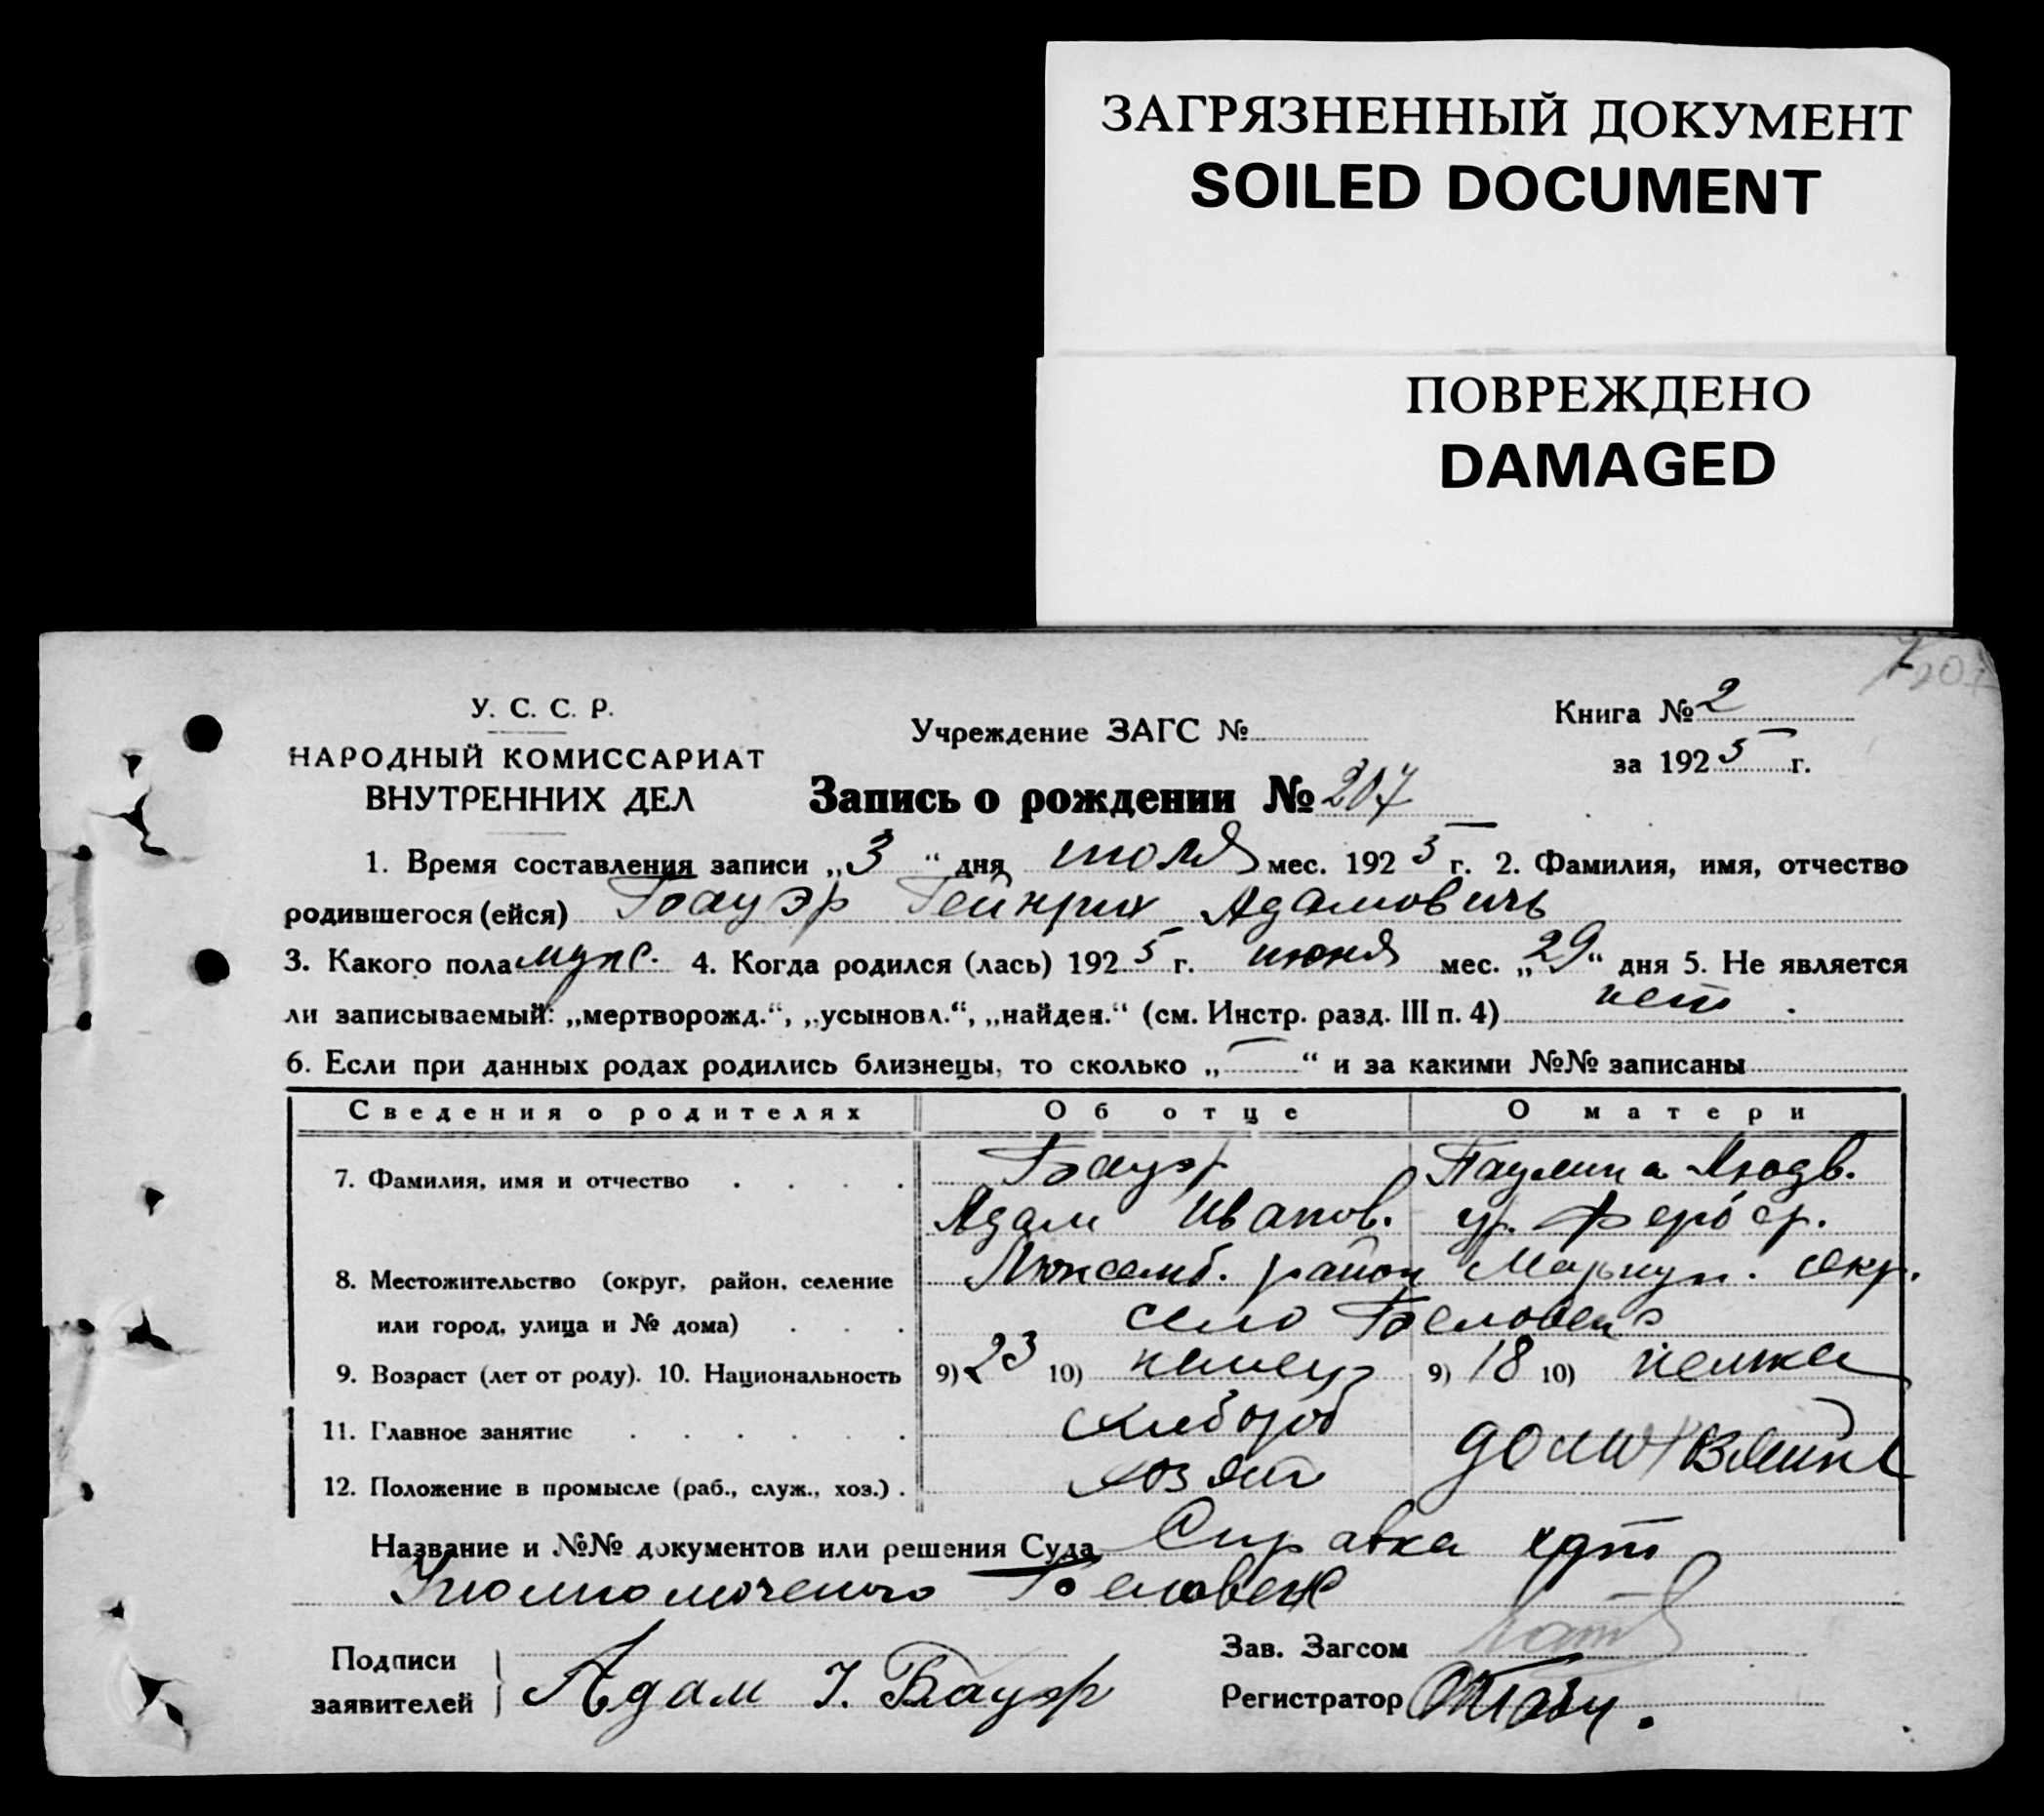 ЗАГРЯЗНЕННЫЙ ДОКУМЕНТ
SOILED DOCUMENT
ПОВРЕЖДЕНО
DAMAGED
У. С. С. Р.
НАРОДНЫЙ КОМИССАРИАТ
ВНУТРЕННИХ ДЕЛ
Учреждение ЗАГС №
Книга № 2
за 1925 г.
Запись о рождении № 207
1. Время составления записи „3“ дня июля мес. 1925 г. 2. Фамилия, имя, отчество
родившегося (ейся) Бауэр Гейнрих Адамовичъ
3. Какого пола муж. 4. Когда родился (лась) 1925 г. июня мес. „29“ дня 5. Не является
ли записываемый: „мертворожд.“, „усыновл.“, „найден.“ (см. Инстр. разд. III п. 4) нет.
6. Если при данных родах родились близнецы, то сколько „—“ и за какими №№ записаны
Сведения о родителях Об отце О матери
7. Фамилия, имя и отчество Бауэр Паулина Людв.
Адам Иванов. ур. Фербер.
8. Местожительство (округ, район, селение Люксемб. район Мариуп. окр.
или город, улица и № дома) село Беловеж
9. Возраст (лет от роду). 10. Национальность 9) 23 10) немец 9) 18 10) немка
11. Главное занятие хлебороб
12. Положение в промысле (раб., служ., хоз.) хозяин
Название и №№ документов или решения Суда Справка
Уполномоченого Беловеж
Подписи
заявителей Адам І. Бауэр
Зав. Загсом
Регистратор